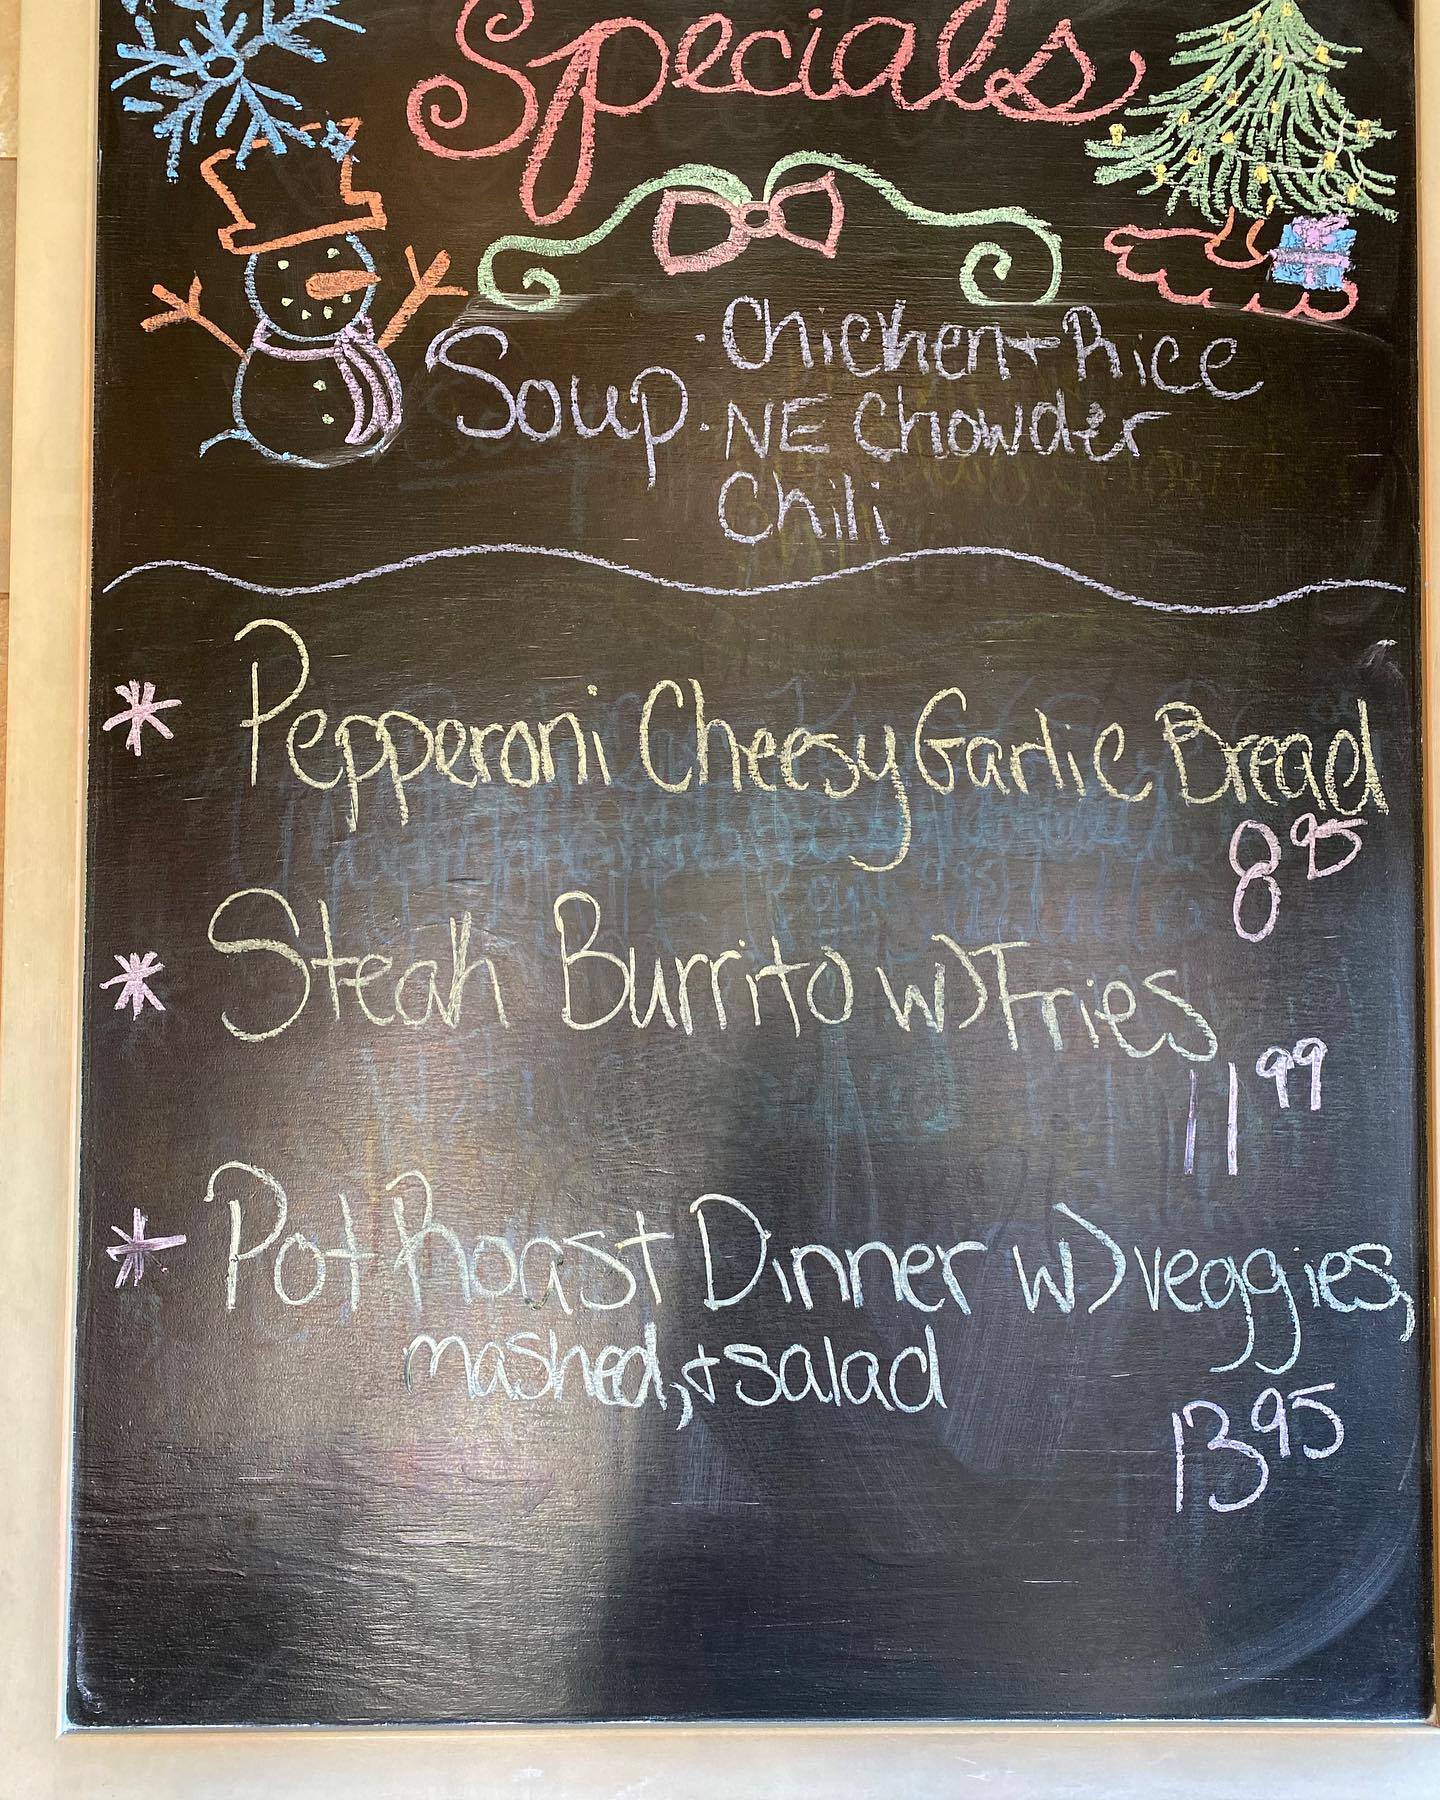 Specials
Soup · Chicken + Rice
· NE Chowder
Chili
* Pepperoni Cheesy Garlic Bread
8 95
* Steak Burrito w) Fries
11 99
* Pot Roast Dinner w) veggies,
mashed, + salad
13 95